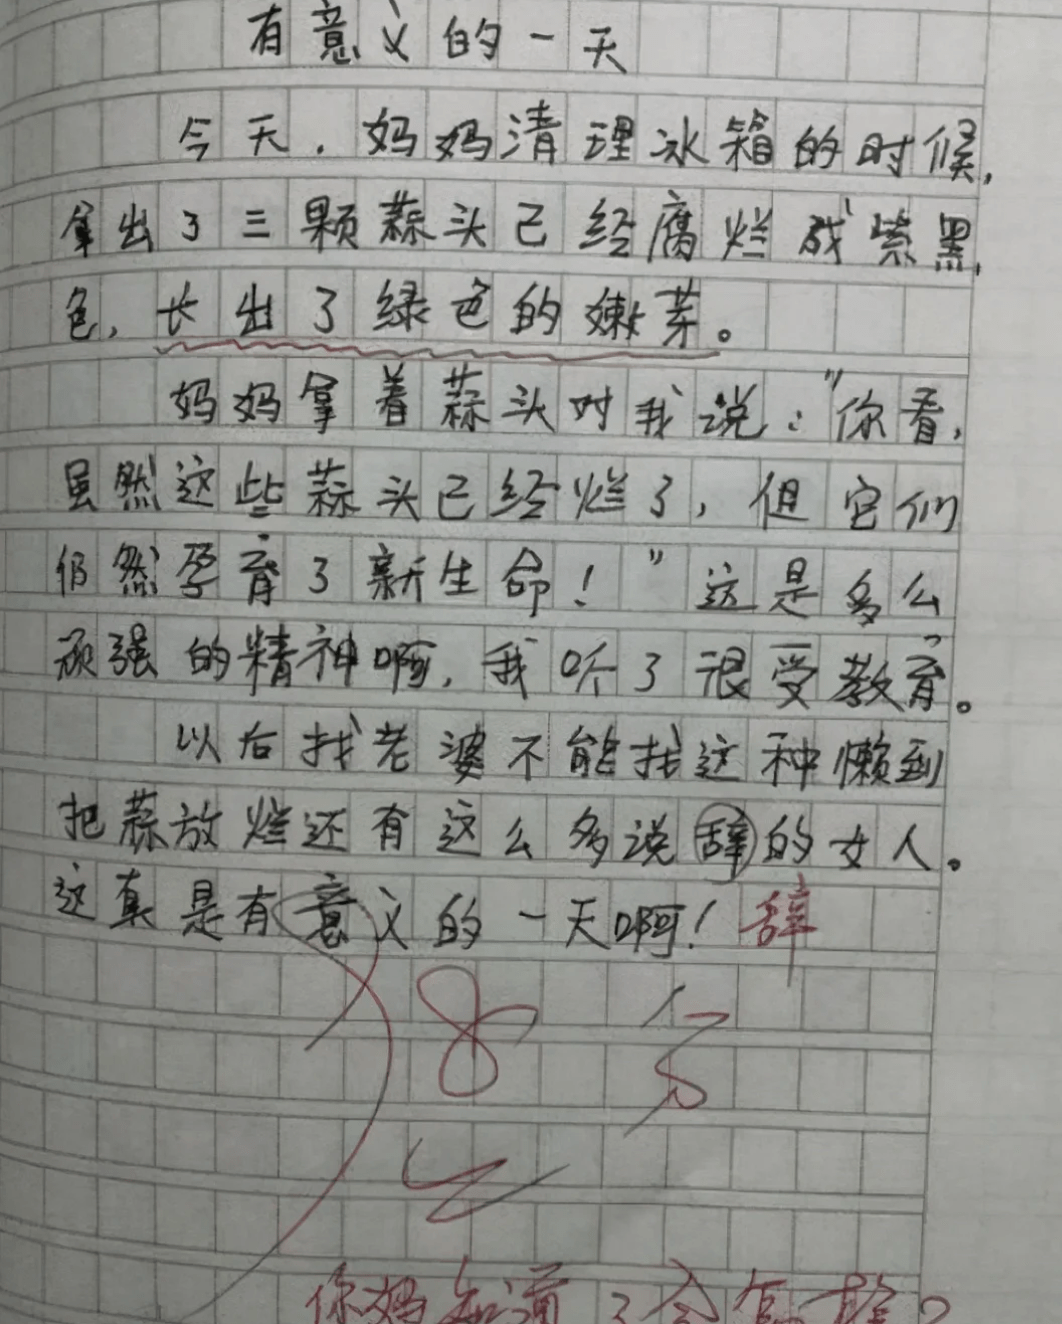 有意义的一天
今天，妈妈清理冰箱的时候，
拿出了三颗蒜头已经腐烂成紫黑
色，长出了绿色的嫩芽。
妈妈拿着蒜头对我说："你看，
虽然这些蒜头已经烂了，但它们
仍然孕育了新生命！"这是多么
顽强的精神啊，我听了很受教育。
以后找老婆不能找这种懒到
把蒜放烂还有这么多说辞的女人。
这真是有意义的一天啊！辞
你妈知道了会怎